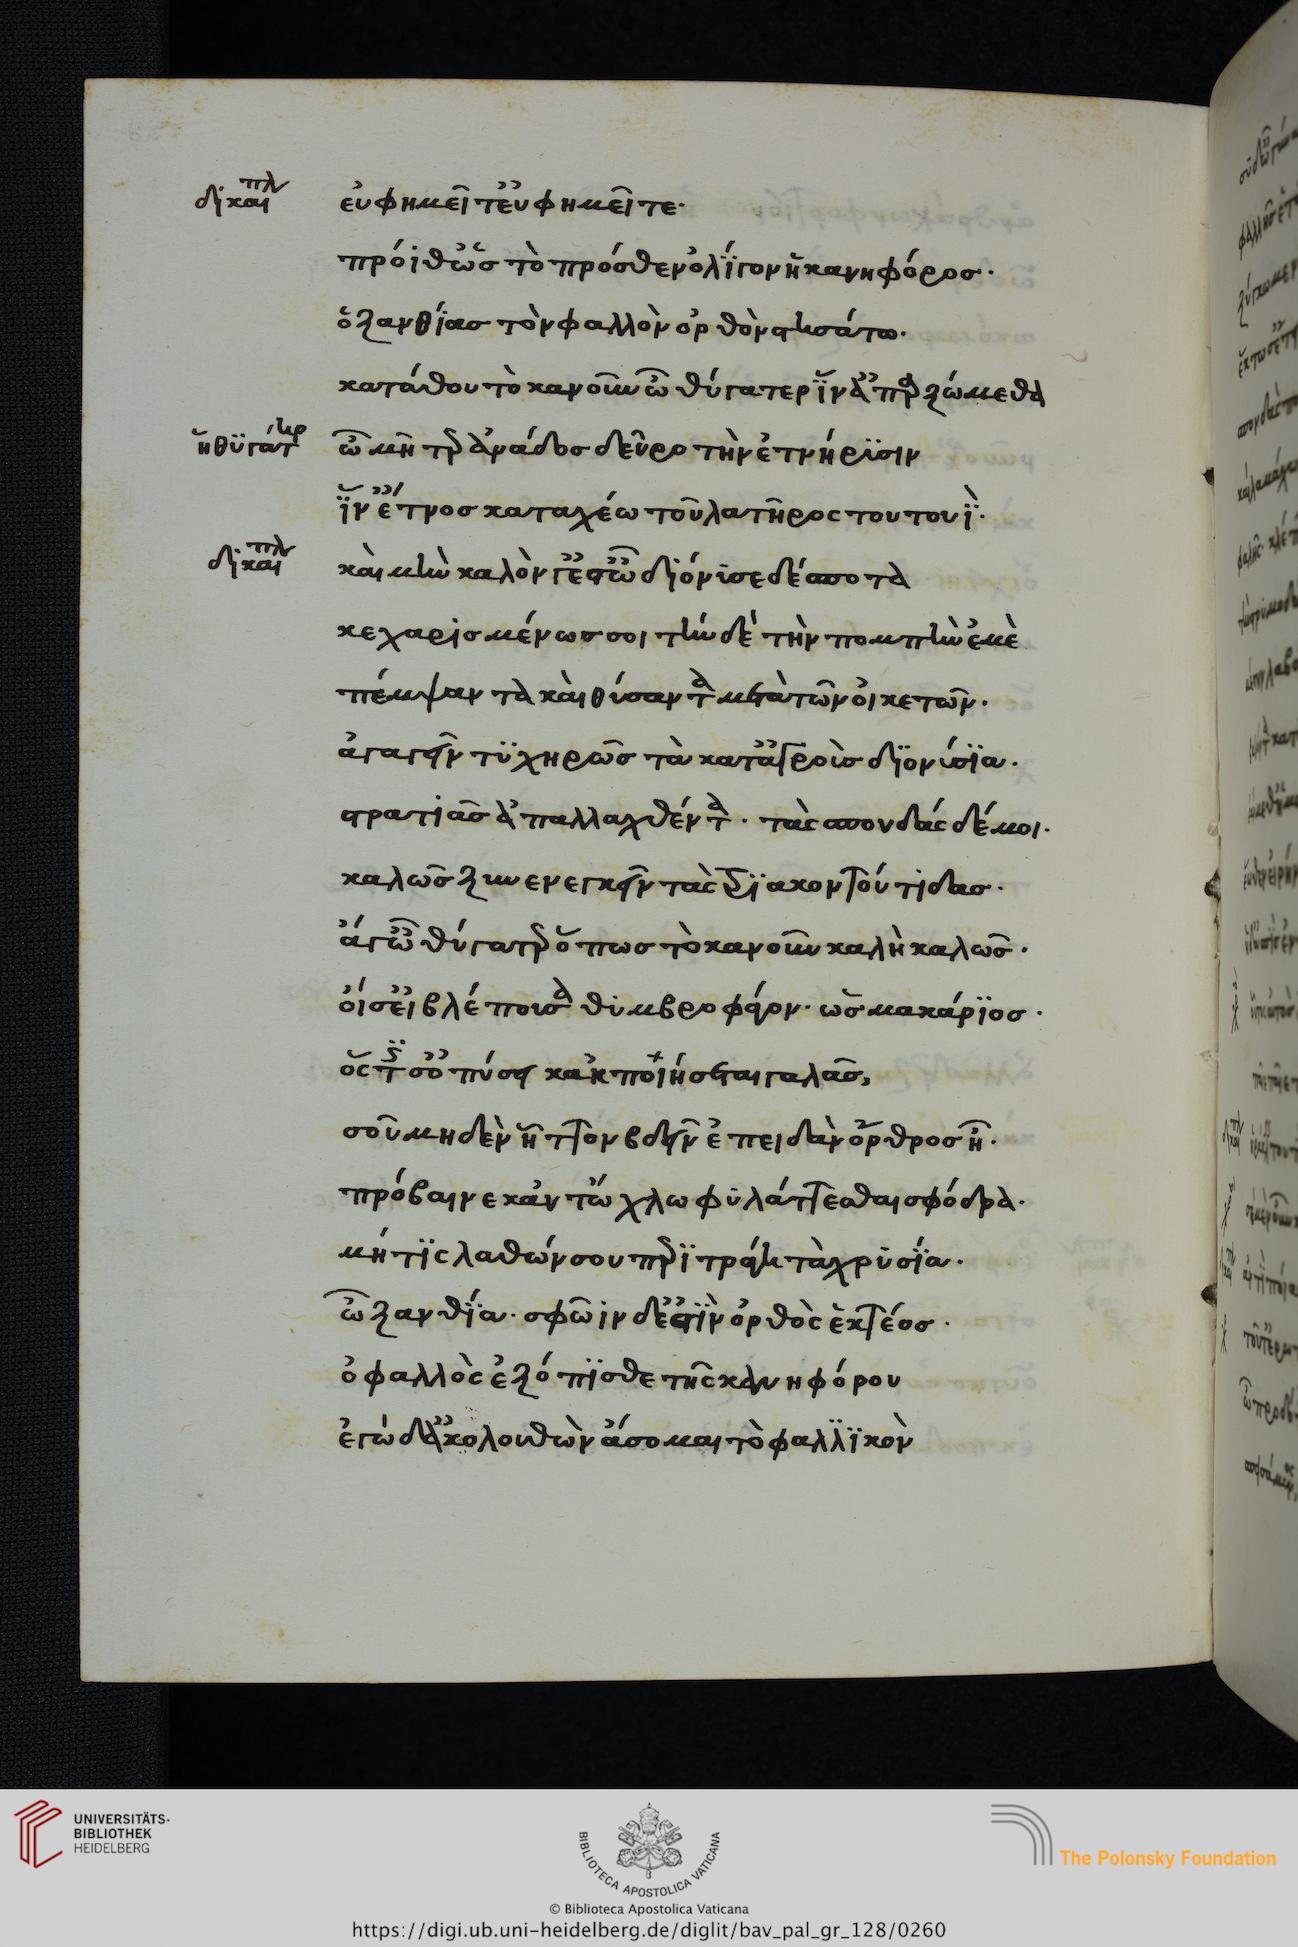 δικαιπλ εὐφημεῖτ εὐφημεῖτε·
πρόϊθ ὡς τὸ πρόσθεν ὀλίγον ἡ κανηφόρος·
ὁ ξανθίας τὸν φαλλὸν ὀρθὸν στησάτω·
κατάθου τὸ κανοῦν ὦ θύγατερ ἵν ἀπαρξώμεθα
ἡ θυγάτηρ ὦ μῆτερ ἀνάδος δεῦρο τὴν ἐτνήρϊσιν
ἵν ἔτνος καταχέω τοῦλατῆρος τουτουΐ·
δικαιπλ καὶ μὴν καλόν γ ἔστ ὦ διόνισε δέσποτα
κεχαρισμένως σοι τήνδε τὴν πομπὴν ἐμὲ
πέμψαντα καὶ θύσαντα μετὰ τῶν οἰκετῶν·
ἀγαγεῖν τυχηρῶς τὰ κατ ἀγροὺς διονύσϊα·
στρατιᾶς ἀπαλλαχθέντα· τὰς σπονδάς δέ μοι·
καλῶς ξυνενεγκεῖν τὰς τριακοντούτιδας·
ἄγ ὦ θύγατερ ὅπως τὸ κανοῦν καλὴ καλῶς·
οἴσει βλέπουσα θυμβροφάγον· ὡς μακάρϊος·
ὅστις σ ὀπύσει κἀκποιήσεται γαλᾶς,
σοῦ μηδὲν ἧττον βδεῖν ἐπειδὰν ὄρθρος ᾖ·
πρόβαινε κἀν τὤχλω φυλάττεσθαι σφόδρα·
μή τις λαθών σου περιτράγη τὰ χρυσία·
ὦ ξανθία· σφῶιν δ ἐστὶν ὀρθὸς ἑκτέος·
ὁ φαλλὸς ἐξόπϊσθε τῆς κανηφόρου
ἐγὼ δ ἀκολουθῶν ἄσομαι τὸ φαλλϊκὸν
UNIVERSITÄTS-
BIBLIOTHEK
HEIDELBERG
BIBLIOTECA APOSTOLICA VATICANA
The Polonsky Foundation
© Biblioteca Apostolica Vaticana
https://digi.ub.uni-heidelberg.de/diglit/bav_pal_gr_128/0260